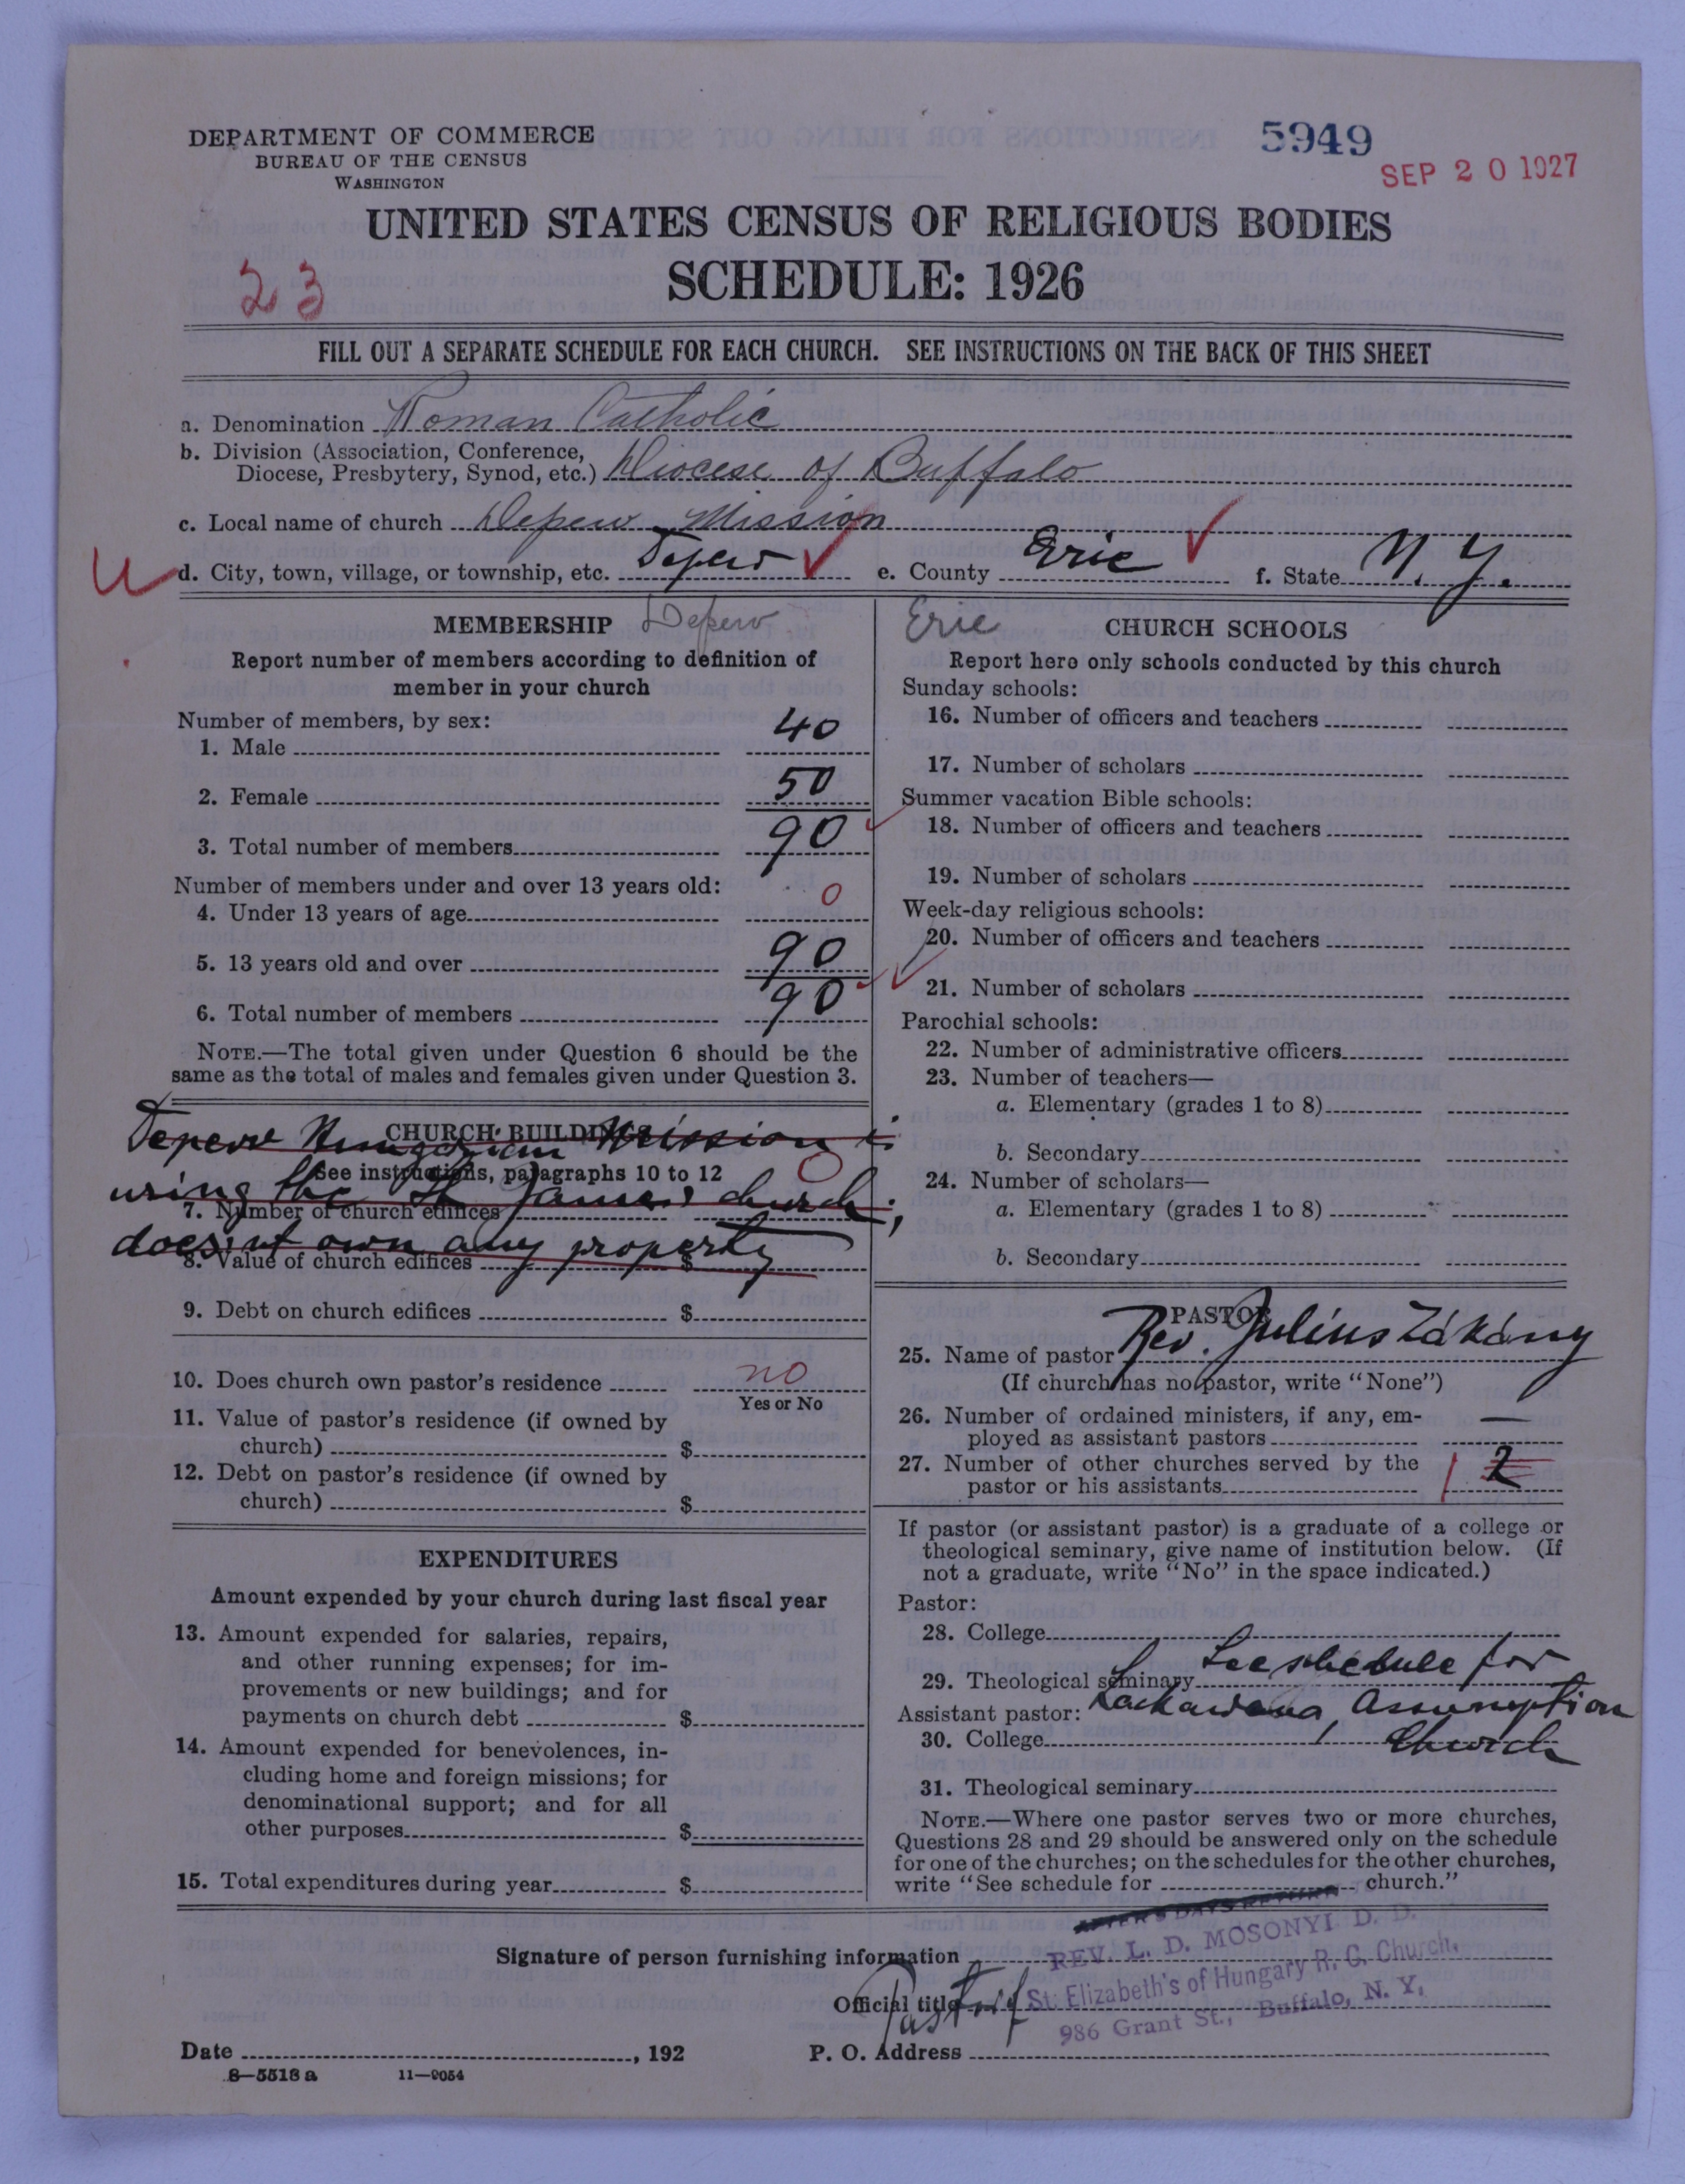 DEPARTMENT OF COMMERCE
BUREAU OF THE CENSUS
WASHINGTON
5949
SEP 20 1927
UNITED STATES CENSUS OF RELIGIOUS BODIES
SCHEDULE: 1926
23
FILL OUT A SEPARATE SCHEDULE FOR EACH CHURCH. SEE INSTRUCTIONS ON THE BACK OF THIS SHEET
a. Denomination Roman Catholic
b. Division (Association, Conference,
Diocese, Presbytery, Synod, etc.) Diocese of Buffalo
c. Local name of church Depew Mission
U d. City, town, village, or township, etc. Depew ✓ e. County Erie ✓ f. State N. Y.
MEMBERSHIP Depew
Report number of members according to definition of
member in your church
Number of members, by sex:
1. Male 40
2. Female 50
3. Total number of members 90
Number of members under and over 13 years old:
4. Under 13 years of age 0
5. 13 years old and over 90
6. Total number of members 90
NOTE.—The total given under Question 6 should be the
same as the total of males and females given under Question 3.
CHURCH BUILDINGS
Depew Hungarian Mission is
See instructions, paragraphs 10 to 12 0
using the St James church;
7. Number of church edifices
does nt own any property
8. Value of church edifices $
9. Debt on church edifices $
10. Does church own pastor's residence no
Yes or No
11. Value of pastor's residence (if owned by
church) $
12. Debt on pastor's residence (if owned by
church) $
EXPENDITURES
Amount expended by your church during last fiscal year
13. Amount expended for salaries, repairs,
and other running expenses; for im-
provements or new buildings; and for
payments on church debt $
14. Amount expended for benevolences, in-
cluding home and foreign missions; for
denominational support; and for all
other purposes $
15. Total expenditures during year $
Erie CHURCH SCHOOLS
Report here only schools conducted by this church
Sunday schools:
16. Number of officers and teachers
17. Number of scholars
Summer vacation Bible schools:
18. Number of officers and teachers
19. Number of scholars
Week-day religious schools:
20. Number of officers and teachers
21. Number of scholars
Parochial schools:
22. Number of administrative officers
23. Number of teachers—
a. Elementary (grades 1 to 8)
b. Secondary
24. Number of scholars—
a. Elementary (grades 1 to 8)
b. Secondary
PASTOR
25. Name of pastor Rev. Julius Zákány
(If church has no pastor, write "None")
26. Number of ordained ministers, if any, em-
ployed as assistant pastors —
27. Number of other churches served by the
pastor or his assistants 1 2
If pastor (or assistant pastor) is a graduate of a college or
theological seminary, give name of institution below. (If
not a graduate, write "No" in the space indicated.)
Pastor:
28. College
29. Theological seminary See schedule for
Assistant pastor: Lackawana, Assumption
30. College Church
31. Theological seminary
NOTE.—Where one pastor serves two or more churches,
Questions 28 and 29 should be answered only on the schedule
for one of the churches; on the schedules for the other churches,
write "See schedule for church."
AFTER 5 DAYS RETURN
Signature of person furnishing information REV. L. D. MOSONYI D. D.
Official title Pastor of St. Elizabeth's of Hungary R. C. Church,
986 Grant St., Buffalo, N. Y,
Date , 192 P. O. Address
8—5518 a 11—9054